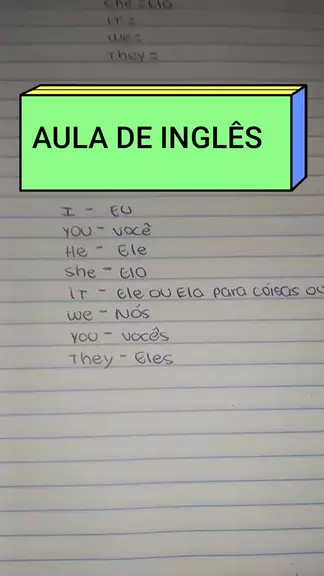 She = Ela
IT =
we =
They =
AULA DE INGLÊS
I - EU
YOU - Você
He - Ele
She - Ela
IT - Ele OU Ela para coisas ou
we - Nós
YOU - vocês
They - Eles